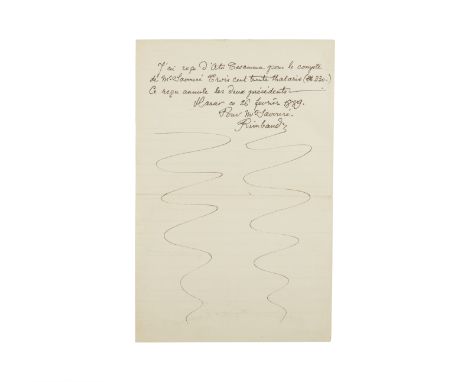 J'ai reçu d'Ato Tessamma pour le compte
de Mr Savouré Trois cent trente thalaris (Th 330.)
Ce reçu annule les deux précédents
Harar ce 25 février 1889.
Pour Mr Savouré.
Rimbaud